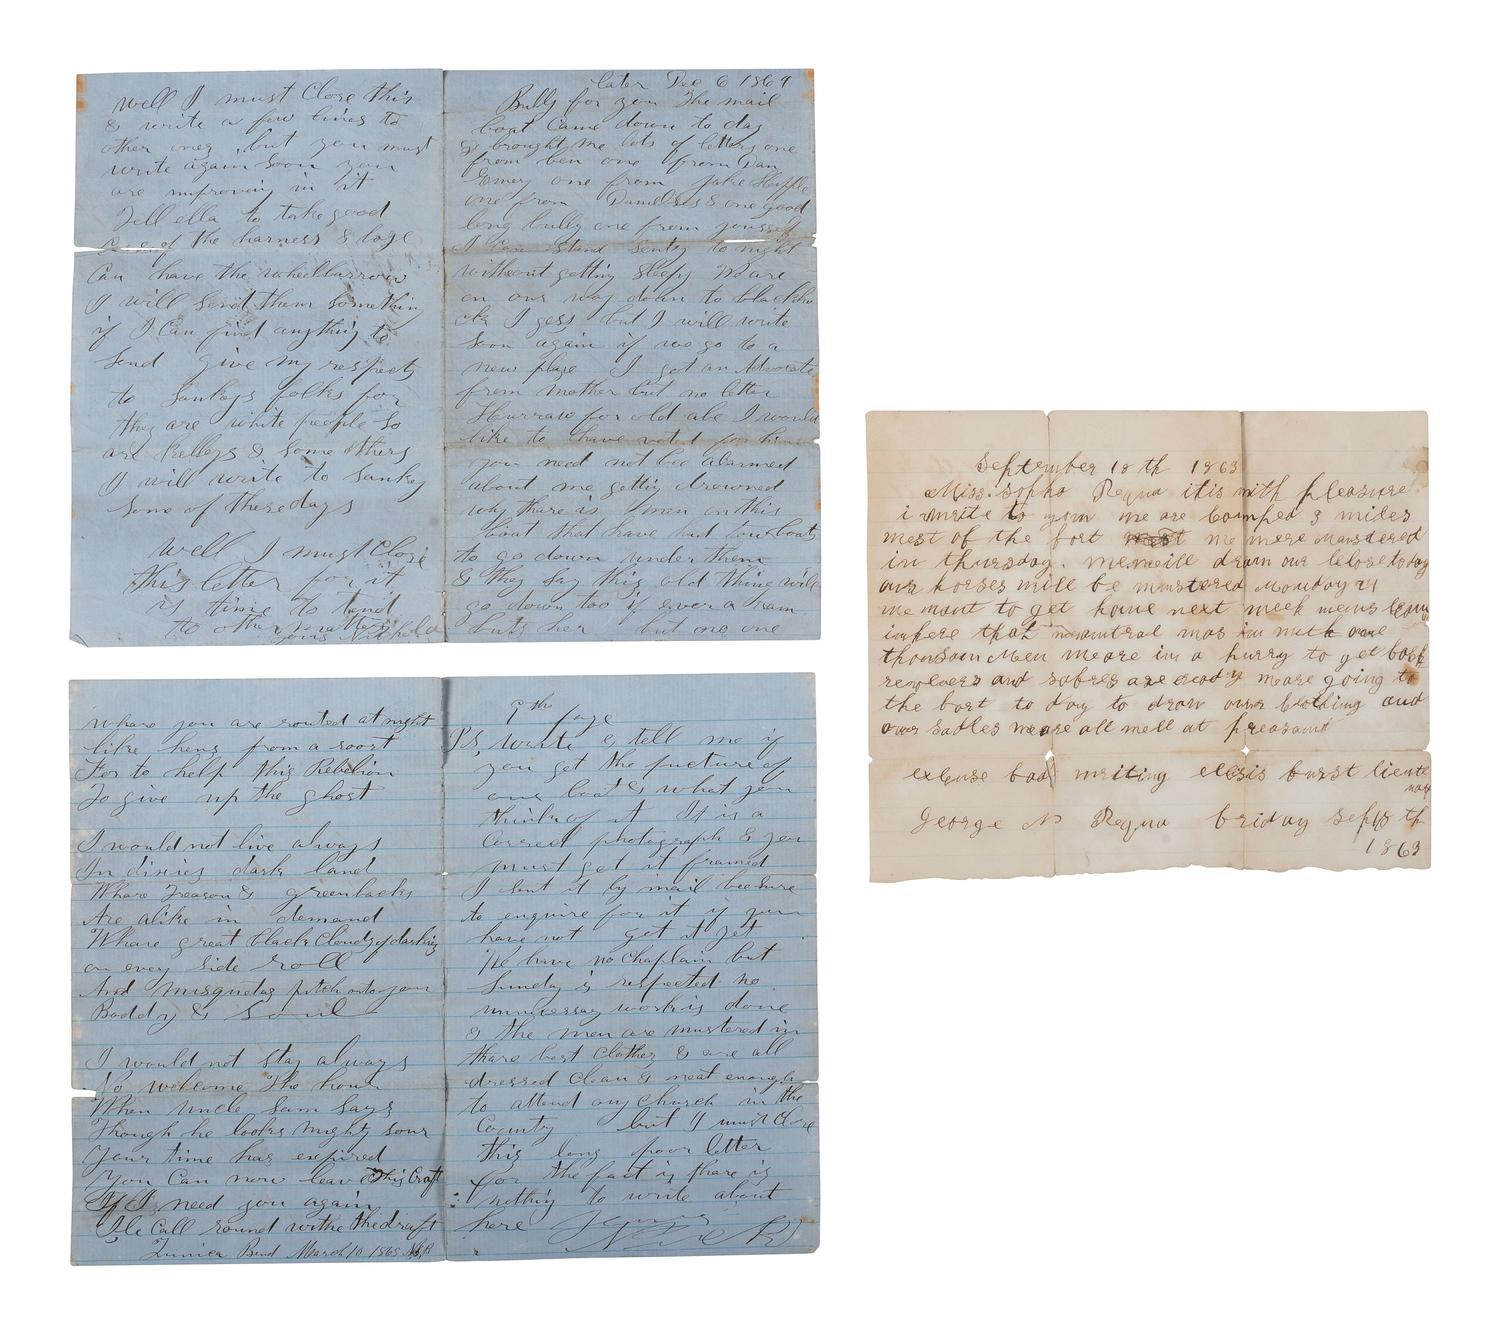 well I must Close this
& write a few lines to
other ones, but you must
write again soon you
are improveing in it
Tell ella to take good
Care of the harness &
Can have the wheelbarrow
I will send them something
if I Can find anything to
send give my respects
to Sankeys folks for
they are white people so
are Kelleys & some others
I will write to Sankey
Some of these days
Well I must Close
this letter for it
is time to tend
to other matters
yours Nicholas
later Dec 6 1864
Bully for you The mail
boat Came down to day
& brought me lots of letters one
from ben one from Dan
Emery one from Jake
one from & one good
long bully one from yourself
I Can stand Sentry to night
without getting sleepy We are
on our way down to
I gess but I will write
soon again if we go to a
new place I got an Advocate
from mother but no letter
Hurraw for old abe I would
like to have voted for him
you need not bee alarmed
about me getting drowned
why there is men on this
boat that have had two boats
to go down under them
& they say this old thing will
go down too if ever a ram
buts her but no one
whare you are routed at night
like hens from a roost
For to help this Rebelion
To give up the ghost
I would not live always
In dixies dark land
Whare Treason & greenbacks
Are alike in demand
Whare great black Clouds of darkies
on evry side roll
And musquetos pitch onto you
Boddy & Soul
I would not stay always
No welcome The hour
When uncle Sam says
Though he looks mighty sour
Your time has expired
You Can now leav This Craft
If I need you again
Ile Call round withe the draft
Tunica Bend March 10 1865 N,B,R
9th page
P.S. write & tell me if
you got the picture of
our boat & what you
think of it It is a
Correct photograph & you
must get it framed
I sent it by mail bee sure
to enquire for it if you
have not get it yet
We have no Chaplain but
Sunday is respected no
unnecessay work is done
& the men are mustered in
thare best Clothes & are all
dressed Clean & neat enough
to attend any Church in the
Country but I must Close
this long poor letter
for the fact is thare is
nothing to write about
here yours
Nick
September 18 th 1863
Miss. sopha Requa it is with pleasure
i write to you we are Comped 3 miles
west of the fort we were Mustered
in thursday. we will drawn our Close to day
our horses will be mustered Monday 21
we want to get home next week
that was in with one
thousan Men we are in a hurry to get back
revolvers and sabres are ready we are going to
the fort to day to draw our Clothing and
over sadles we are all well at preasant
excuse bad writing furst lieute
nant
George N Requa friday Sept 18 th
1863